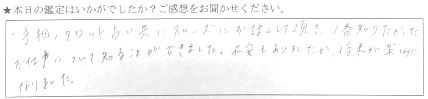 ★本日の鑑定はいかがでしたか?ご感想をお聞かせください。
・手相、タロット占い共にスムーズにお話しして頂き、1番知りたかった
お仕事について知ることができました。不安もありましたが、将来が楽しみに
なりました。